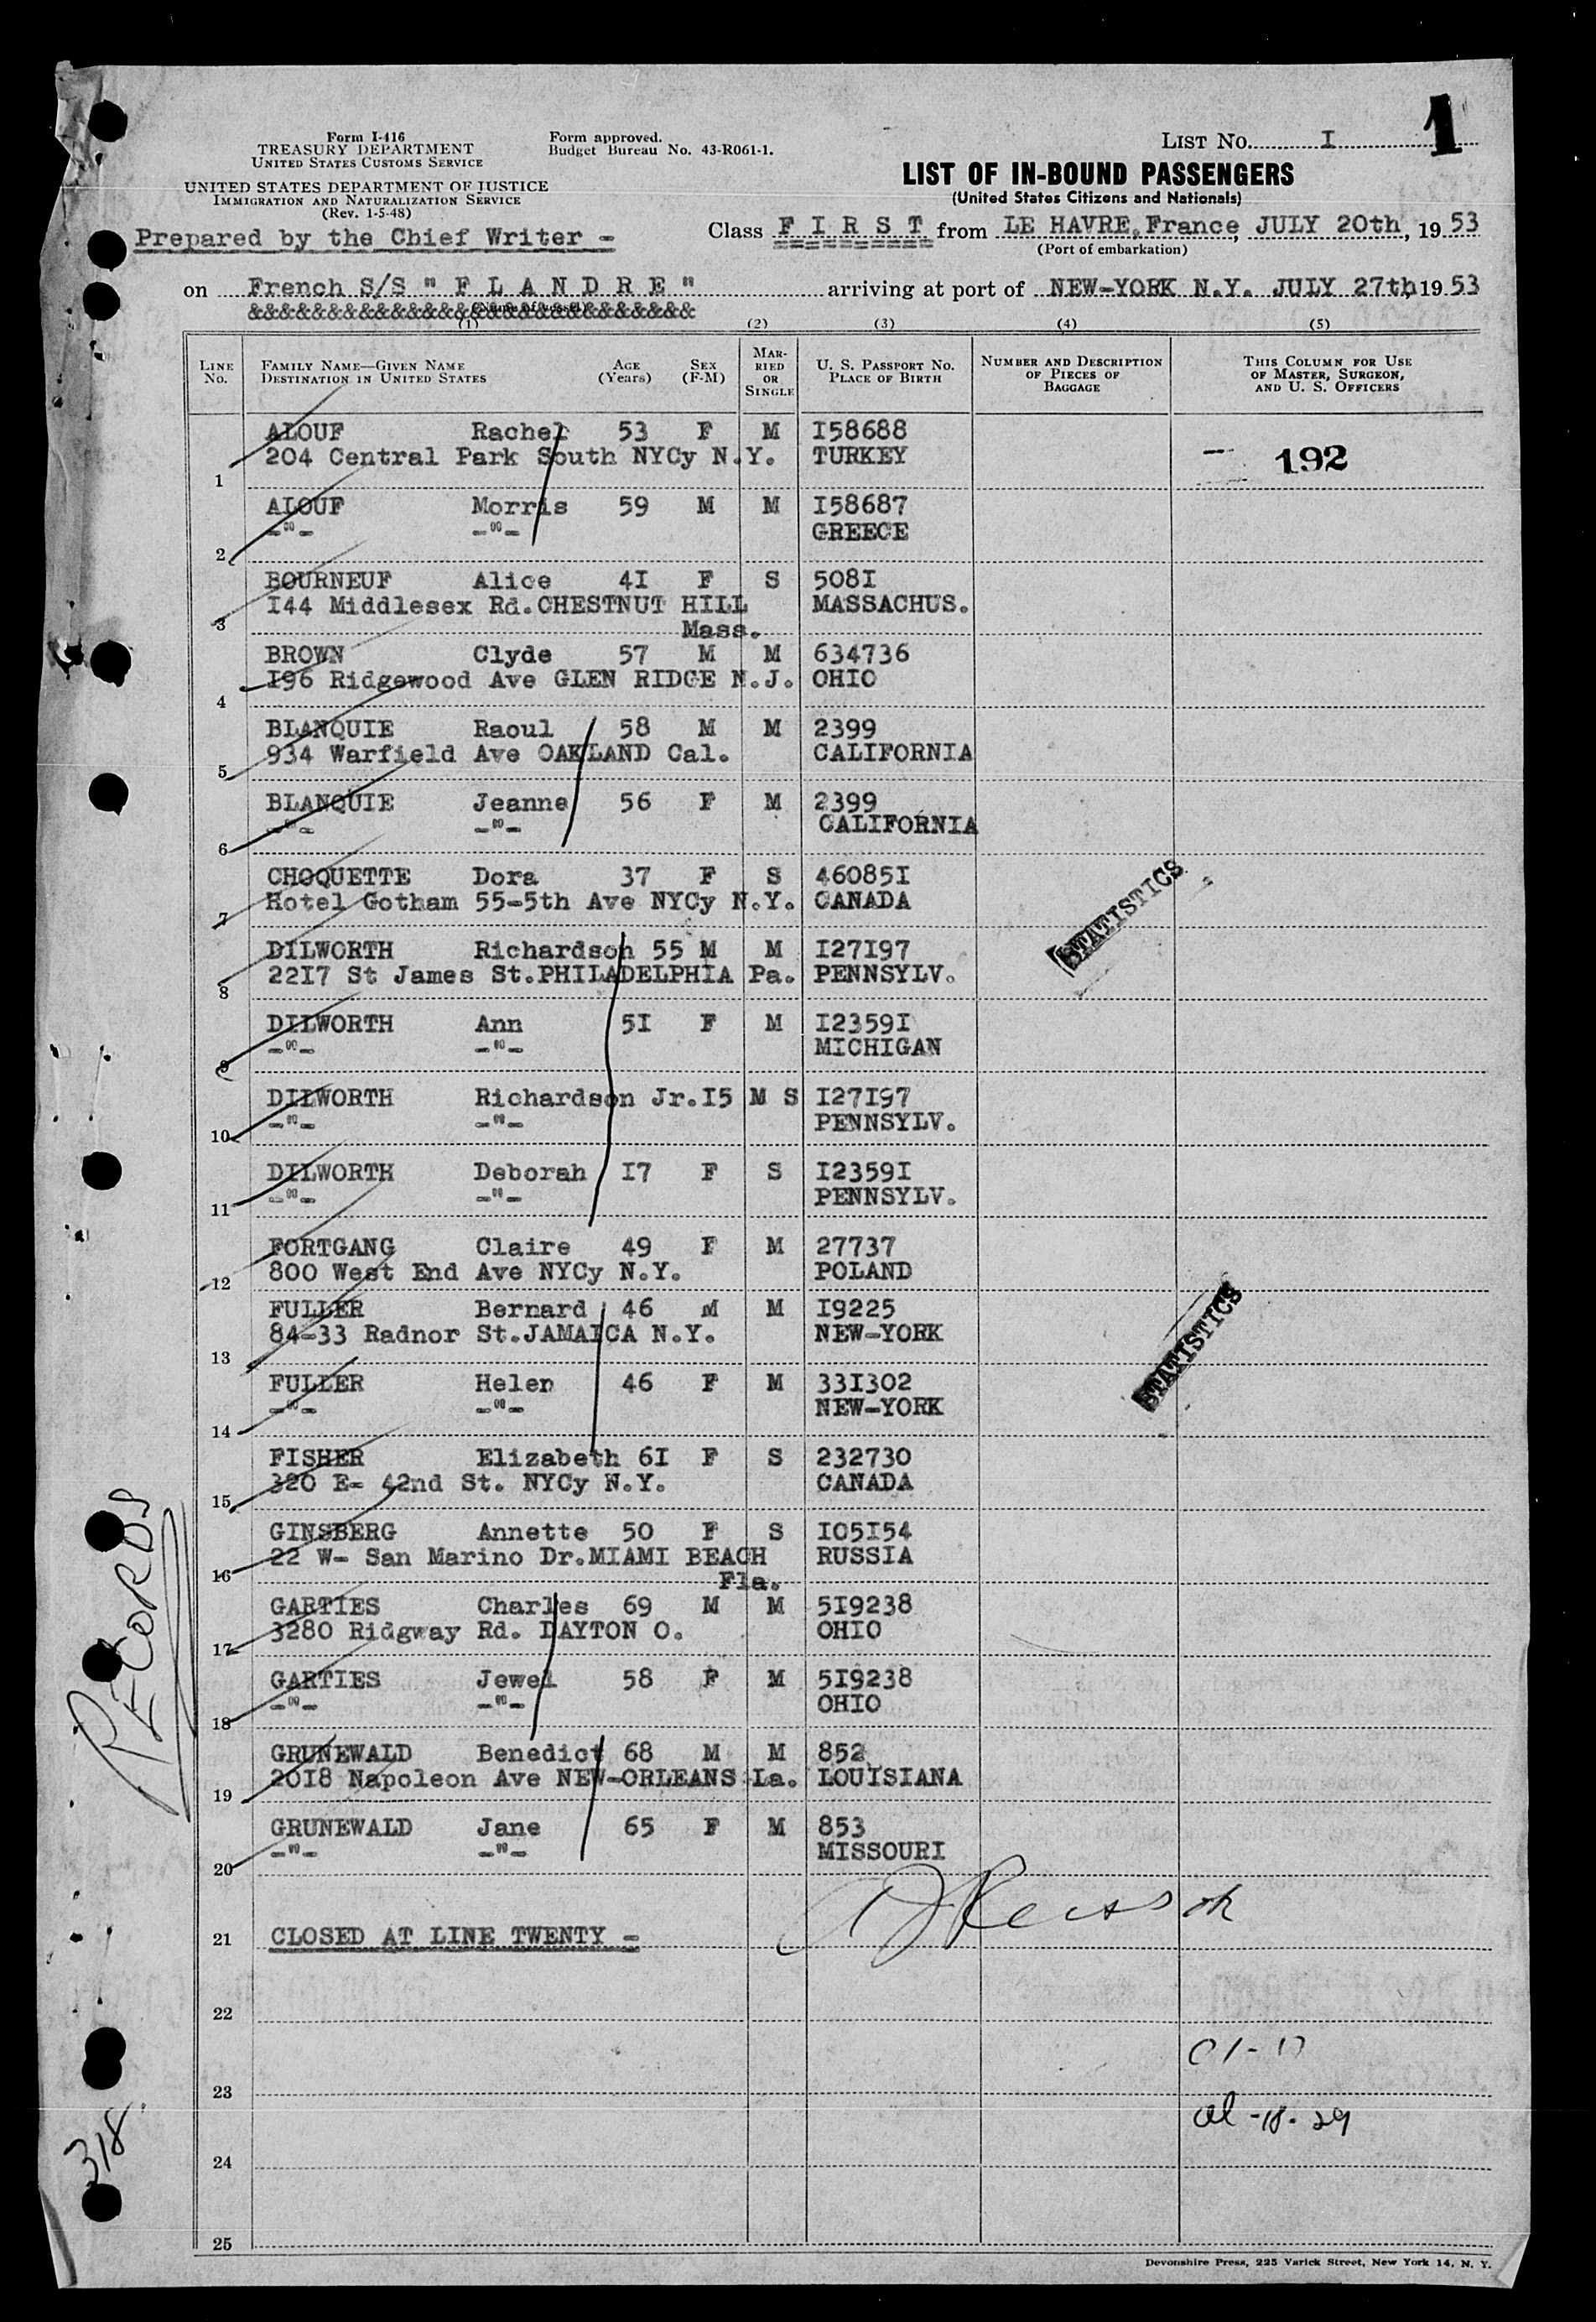 Form I-416
TREASURY DEPARTMENT
UNITED STATES CUSTOMS SERVICE
UNITED STATES DEPARTMENT OF JUSTICE
IMMIGRATION AND NATURALIZATION SERVICE
(Rev. 1-5-48)
Form approved.
Budget Bureau No. 43-R061-1.
LIST No. I 1
LIST OF IN-BOUND PASSENGERS
(United States Citizens and Nationals)
Prepared by the Chief Writer -
Class F I R S T from LE HAVRE.France, JULY 20th, 1953
(Port of embarkation)
on French S/S " F L A N D R E " arriving at port of NEW-YORK N.Y. JULY 27th 1953
&&&&&&&&&&&&&&&&&&&&&&&&&&&&
(1) (2) (3) (4) (5)
LINE No.
FAMILY NAME—GIVEN NAME
DESTINATION IN UNITED STATES
AGE (Years)
SEX (F-M)
MARRIED OR SINGLE
U. S. PASSPORT NO.
PLACE OF BIRTH
NUMBER AND DESCRIPTION OF PIECES OF BAGGAGE
THIS COLUMN FOR USE OF MASTER, SURGEON, AND U. S. OFFICERS
ALOUF Rachel 53 F M I58688
1 204 Central Park South NYCy N.Y. TURKEY
192
ALOUF Morris 59 M M I58687
2 -"- -"- GREECE
BOURNEUF Alice 4I F S 508I
3 I44 Middlesex Rd.CHESTNUT HILL MASSACHUS.
Mass.
BROWN Clyde 57 M M 634736
4 I96 Ridgewood Ave GLEN RIDGE N.J. OHIO
BLANQUIE Raoul 58 M M 2399
5 934 Warfield Ave OAKLAND Cal. CALIFORNIA
BLANQUIE Jeanne 56 F M 2399
6 -"- -"- CALIFORNIA
CHOQUETTE Dora 37 F S 46085I
7 Hotel Gotham 55-5th Ave NYCy N.Y. CANADA
STATISTICS
DILWORTH Richardson 55 M M I27I97
8 22I7 St James St.PHILADELPHIA Pa. PENNSYLV.
DILWORTH Ann 5I F M I2359I
9 -"- -"- MICHIGAN
DILWORTH Richardson Jr.I5 M S I27I97
10 -"- -"- PENNSYLV.
DILWORTH Deborah I7 F S I2359I
11 -"- -"- PENNSYLV.
FORTGANG Claire 49 F M 27737
12 800 West End Ave NYCy N.Y. POLAND
FULLER Bernard 46 M M I9225
13 84-33 Radnor St.JAMAICA N.Y. NEW-YORK
STATISTICS
FULLER Helen 46 F M 33I302
14 -"- -"- NEW-YORK
FISHER Elizabeth 6I F S 232730
15 320 E- 42nd St. NYCy N.Y. CANADA
GINSBERG Annette 50 F S I05I54
16 22 W- San Marino Dr.MIAMI BEACH RUSSIA
Fla.
GARTIES Charles 69 M M 5I9238
17 3280 Ridgway Rd. DAYTON O. OHIO
GARTIES Jewel 58 F M 5I9238
18 -"- -"- OHIO
GRUNEWALD Benedict 68 M M 852
19 20I8 Napoleon Ave NEW-ORLEANS La. LOUISIANA
GRUNEWALD Jane 65 F M 853
20 -"- -"- MISSOURI
21 CLOSED AT LINE TWENTY -
22
23
24
25
RECORDS
318
Devonshire Press, 225 Varick Street, New York 14, N. Y.